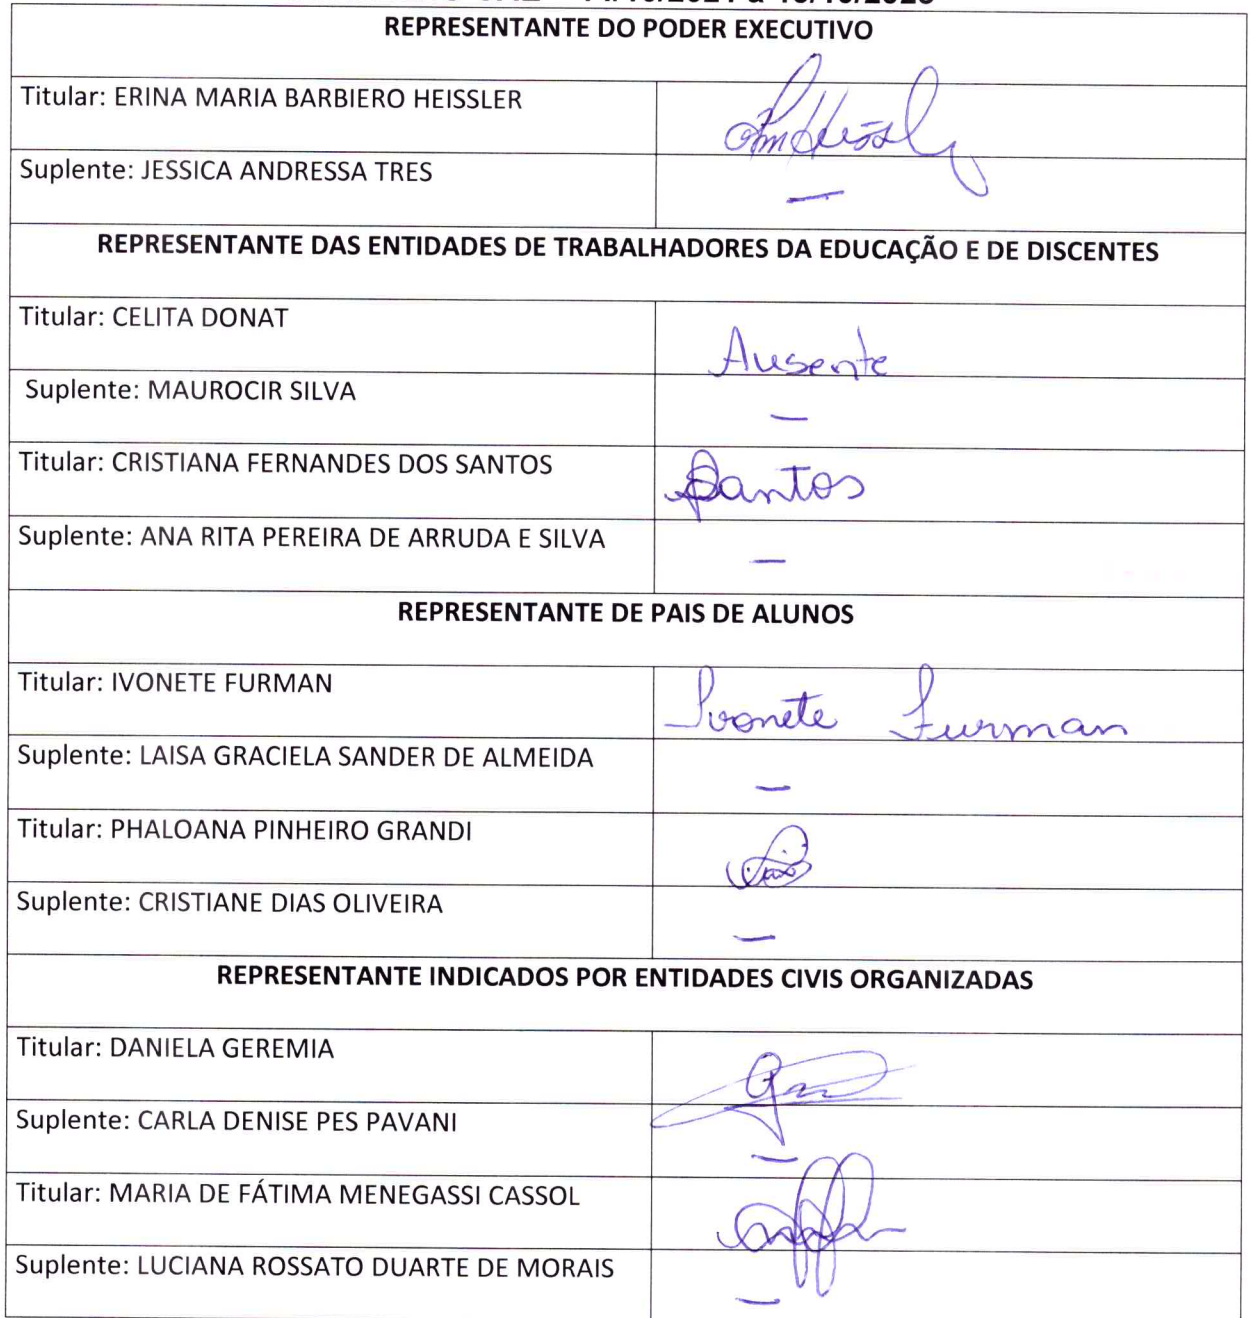 REPRESENTANTE DO PODER EXECUTIVO
Titular: ERINA MARIA BARBIERO HEISSLER
Suplente: JESSICA ANDRESSA TRES
—
REPRESENTANTE DAS ENTIDADES DE TRABALHADORES DA EDUCAÇÃO E DE DISCENTES
Titular: CELITA DONAT
Ausente
Suplente: MAUROCIR SILVA
—
Titular: CRISTIANA FERNANDES DOS SANTOS
Santos
Suplente: ANA RITA PEREIRA DE ARRUDA E SILVA
—
REPRESENTANTE DE PAIS DE ALUNOS
Titular: IVONETE FURMAN
Ivonete Furman
Suplente: LAISA GRACIELA SANDER DE ALMEIDA
—
Titular: PHALOANA PINHEIRO GRANDI
Suplente: CRISTIANE DIAS OLIVEIRA
—
REPRESENTANTE INDICADOS POR ENTIDADES CIVIS ORGANIZADAS
Titular: DANIELA GEREMIA
Suplente: CARLA DENISE PES PAVANI
—
Titular: MARIA DE FÁTIMA MENEGASSI CASSOL
Suplente: LUCIANA ROSSATO DUARTE DE MORAIS
—